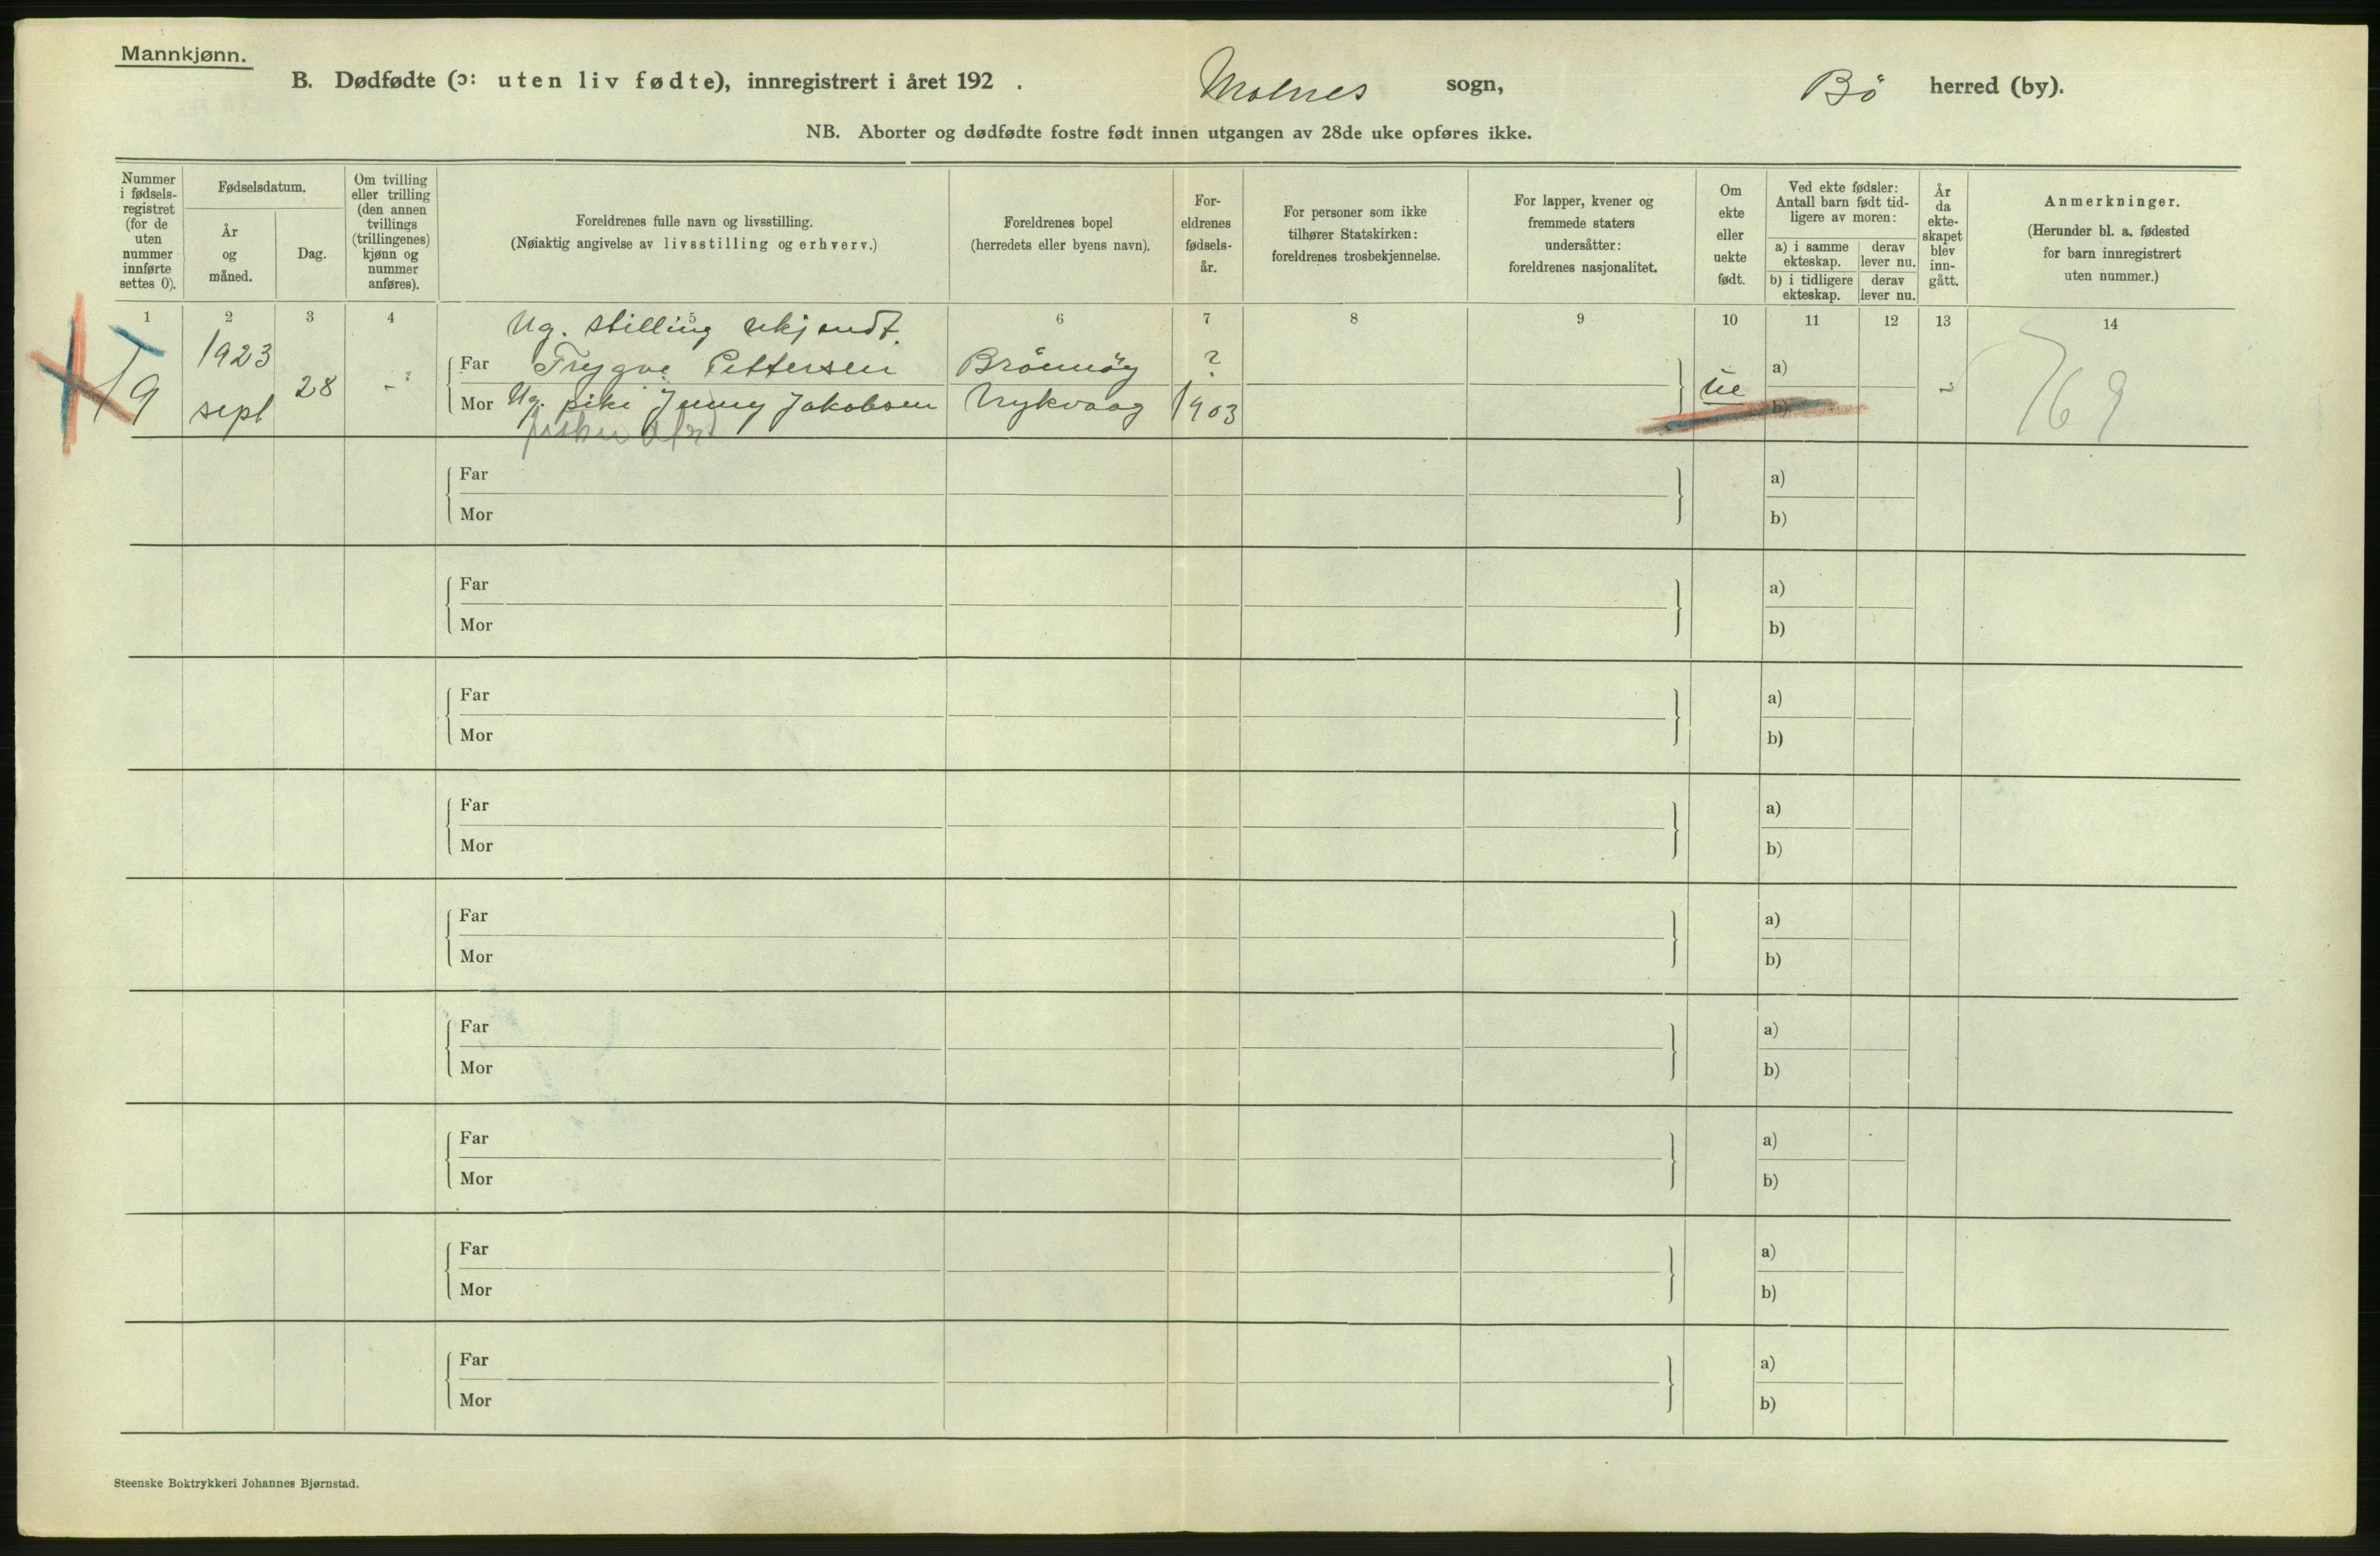 Mannkjønn.
B. Dødfødte (ɔ: uten liv fødte), innregistrert i året 192 . Malnes sogn, Bö herred (by).
NB. Aborter og dødfødte fostre født innen utgangen av 28de uke opføres ikke.
Nummer i fødsels-registret (for de uten nummer innførte settes 0).
Fødselsdatum.
År og måned.
Dag.
Om tvilling eller trilling (den annen tvillings (trillingenes) kjønn og nummer anføres).
Foreldrenes fulle navn og livsstilling.
(Nøiaktig angivelse av livsstilling og erhverv.)
Foreldrenes bopel
(herredets eller byens navn).
For-eldrenes fødsels-år.
For personer som ikke tilhører Statskirken: foreldrenes trosbekjennelse.
For lapper, kvener og fremmede staters undersåtter: foreldrenes nasjonalitet.
Om ekte eller uekte født.
Ved ekte fødsler: Antall barn født tid-ligere av moren:
a) i samme ekteskap.
derav lever nu.
b) i tidligere ekteskap.
derav lever nu.
År da ekte-skapet blev inn-gått.
Anmerkninger.
(Herunder bl. a. fødested for barn innregistrert uten nummer.)
1 2 3 4 5 6 7 8 9 10 11 12 13 14
Ug. stilling ukjendt.
9 1923 sept 28 -
Far Trygve Pettersen Brönnöy ? a)
Mor Ug. pike Jenny Jakobsen Nykvaag 1903 ue b)
769
Far a)
Mor b)
Far a)
Mor b)
Far a)
Mor b)
Far a)
Mor b)
Far a)
Mor b)
Far a)
Mor b)
Far a)
Mor b)
Far a)
Mor b)
Far a)
Mor b)
Steenske Boktrykkeri Johannes Bjørnstad.